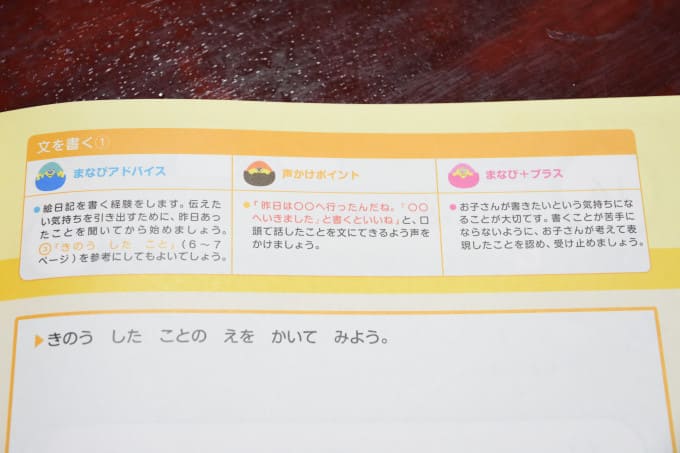 文を書く①
まなびアドバイス
●絵日記を書く経験をします。伝えた
い気持ちを引き出すために、昨日あっ
たことを聞いてから始めましょう。
②「きのう した こと」(6~7
ページ)を参考にしてもよいでしょう。
声かけポイント
●「昨日は〇〇へ行ったんだね。『〇〇
へいきました』と書くといいね」と、口
頭で話したことを文にできるよう声を
かけましょう。
まなび+プラス
●お子さんが書きたいという気持ちにな
ることが大切です。書くことが苦手に
ならないように、お子さんが考えて表
現したことを認め、受け止めましょう。
▶きのう した ことの えを かいて みよう。